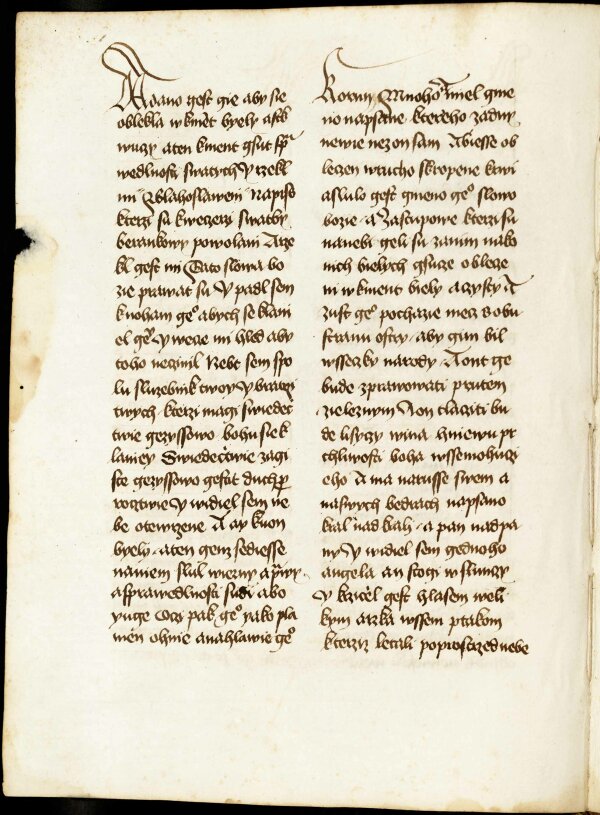 Adano gest gie aby sie
oblekla w kmēt byely a stk
wuczy a ten kment gsut spͣ
wedlnosti swatych Y rzekl
mi Zblahoslaweni Napiss
kterzi sa k weczerzi swatby
berankowy powolani A rze
kl gest mi Tato slowa bo
zie prawat su Y padl sem
k noham geº abych se klani
el geº Y wece mi hled aby
toho neczinil Nebt sem spo
lu sluzebnik twoy Y bratrzi
twych kterzi magi swiedec
twie gezyssowo bohu sie k
laniey Swiedectwie zagi
ste gezyssowo gestit duch pͣ
roctwie Y widiel sem ne
be otewrzene A ay kuon
byely a ten genz sediesse
na niem slul wierny a pͣwy
a sprawedlnosti sudi a bo
yuge Oczi pak geº yako pla
men ohnie a na hlawie geº
Koruny Mnohoͣ A miel gme
no napsane ktereho zadny
newie nez on sam A biesse ob
leczen w rucho skropene krwi
a slulo gest gmeno geº slowo
bozie a Zastupowe kterzi su
na nebi geli su za nim na ko
nich bielych gsuze oblecze
ni w kment biely a czysty A
z ust geº pochazie mecz s obu
stranu ostry aby gim bil
wsseczky narody A on t ge
bude zprawowati prutem
zeleznym A on tlacziti bu
de lisyczy wina hniewu pr
chliwosti boha wssemohuczi
eho A ma na russe swem a
na swych bedrach napsano
kral nad krali a pan nad pa
ny Y widiel sem gednoho
angela an stogi w slunczy
Y krziczel gest hlasem weli
kym a rzka wssem ptakom
kterziz letali po prostrzed nebe